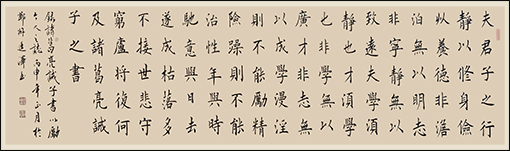 夫君子之行
靜以修身儉
以養德非澹
泊無以明志
非寧靜無以
致遠夫學須
靜也才須學
也非學無以
廣才非志無
以成學漫淫
則不能勵精
險躁則不能
治性年與時
馳意與日去
遂成枯落多
不接世悲守
窮廬將復何
及諸葛亮誡
子之書
錄諸葛亮誡子書以勵
人之 丙申年正月於
鄭州 書